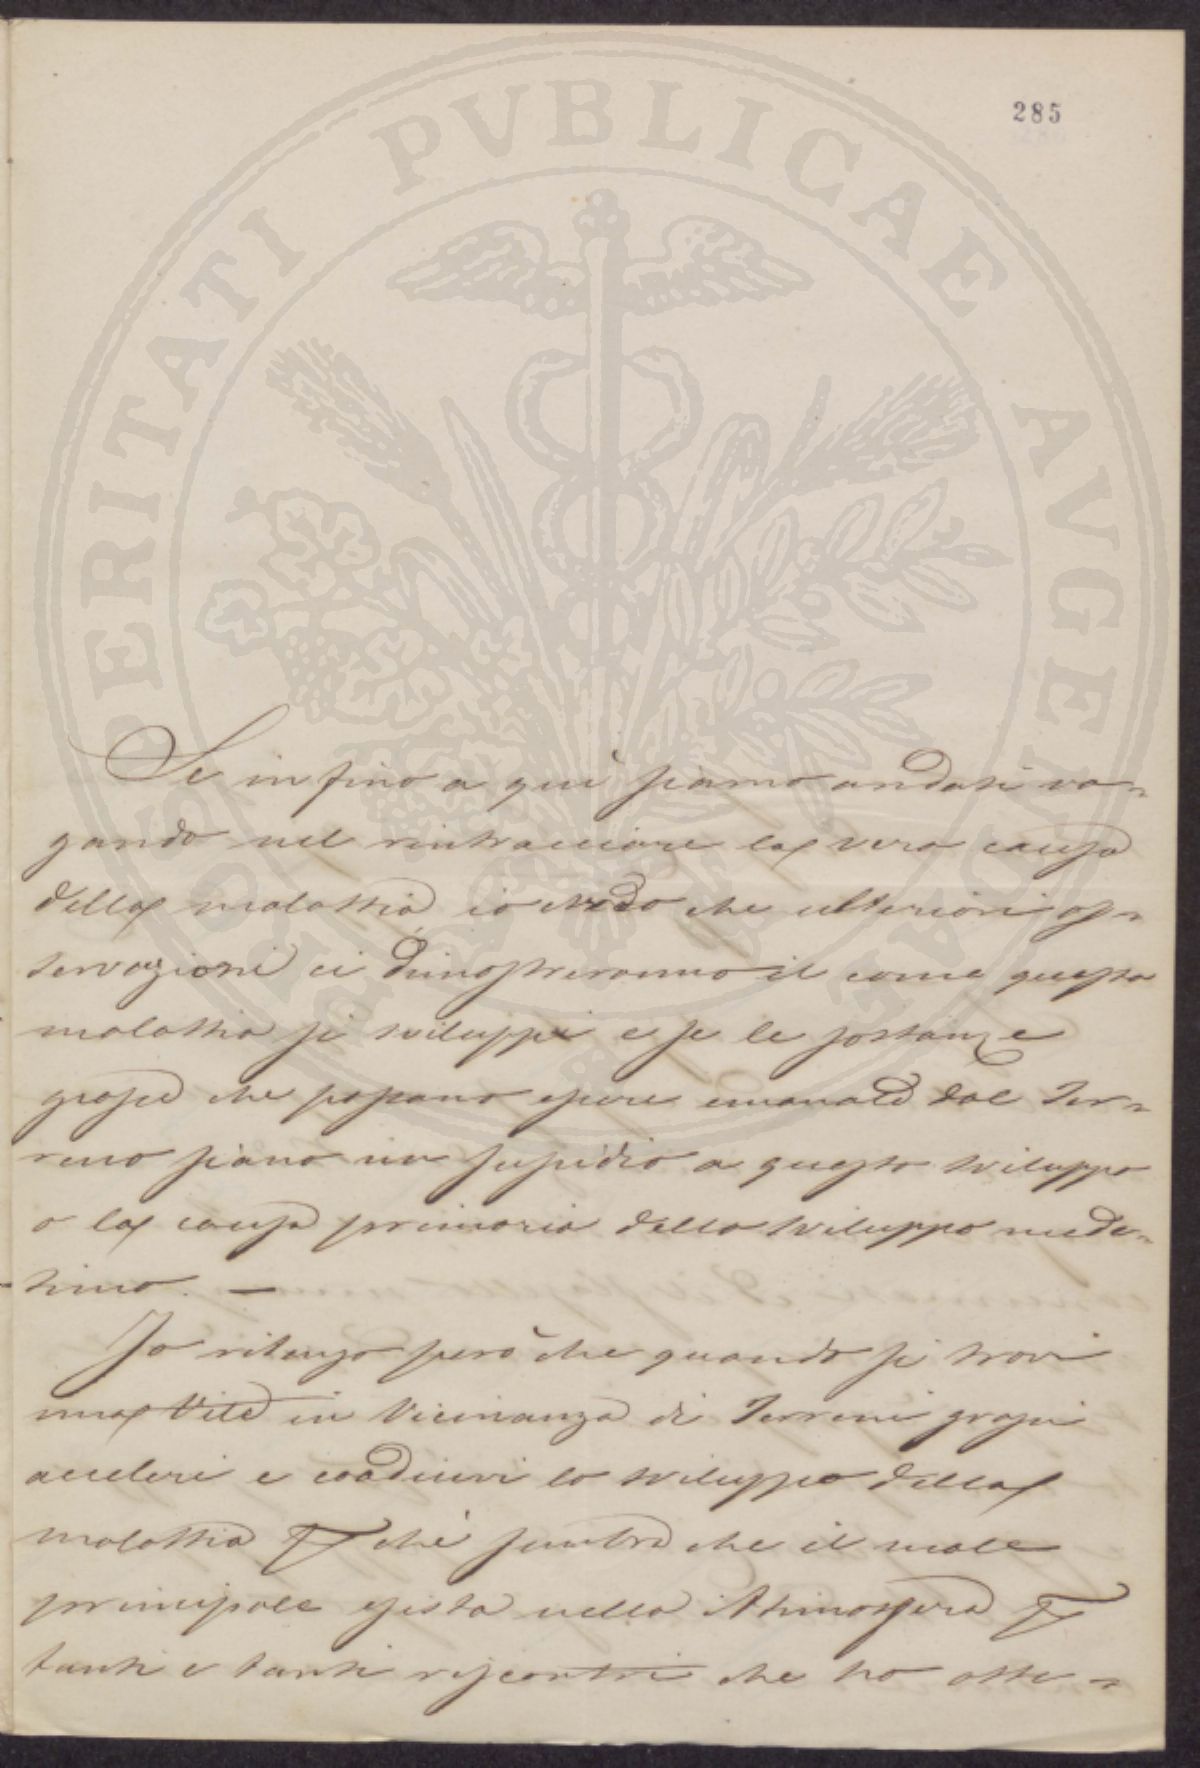 285
PROSPERITATI PVBLICAE AVGENDAE
Se in fino a qui siamo andati va=
gando nel rintracciare la vera causa
della malattia io credo che ulteriori os=
servazioni ci dimostreranno il come questa
malattia si sviluppi e se le sostanze
grasse che possano essere emanate dal Ter=
reno siano un sussidio a questo sviluppo
o la causa primaria dello sviluppo mede=
simo. —
Io ritengo però che quando si trovi
una Vite in Vicinanza di Terreni grassi
acceleri e coadiuvi lo sviluppo della
malattia che sembra che il male
principale esista nella Atmosfera
tanti e tanti riscontri che ho otte=